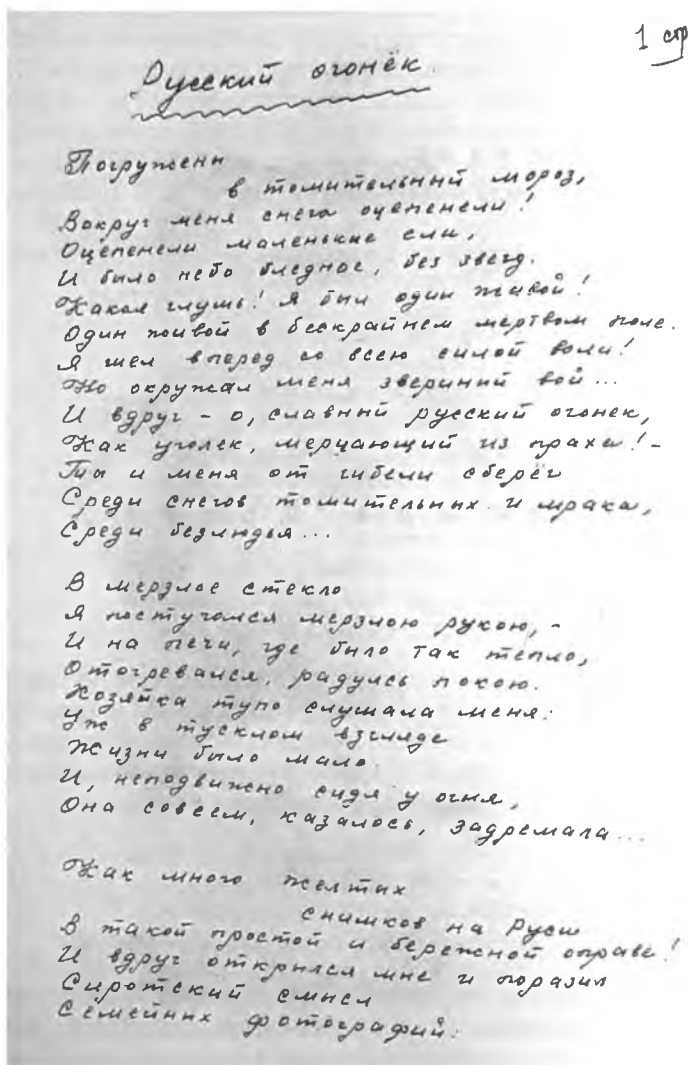 1 стр
Русский огонёк.
Погружены
в томительный мороз,
Вокруг меня снега оцепенели!
Оцепенели маленькие ели,
И было небо бледное, без звезд.
Какая глушь! Я был один живой!
Один живой в бескрайнем мертвом поле.
Я шел вперед со всею силой воли!
Но окружал меня звериный вой...
И вдруг - о, славный русский огонек,
Как уголек, мерцающий из праха! -
Ты и меня от гибели сберёг
Среди снегов томительных и мрака,
Среди безлюдья...
В мерзлое стекло
Я постучался мерзлою рукою, -
И на печи, где было так тепло,
Отогревался, радуясь покою.
Хозяйка тупо слушала меня:
Уж в тусклом взгляде
Жизни было мало.
И, неподвижно сидя у огня,
Она совсем, казалось, задремала...
Как много желтых
снимков на Руси
В такой простой и бережной оправе!
И вдруг открылся мне и поразил
Сиротский смысл
Семейных фотографий: